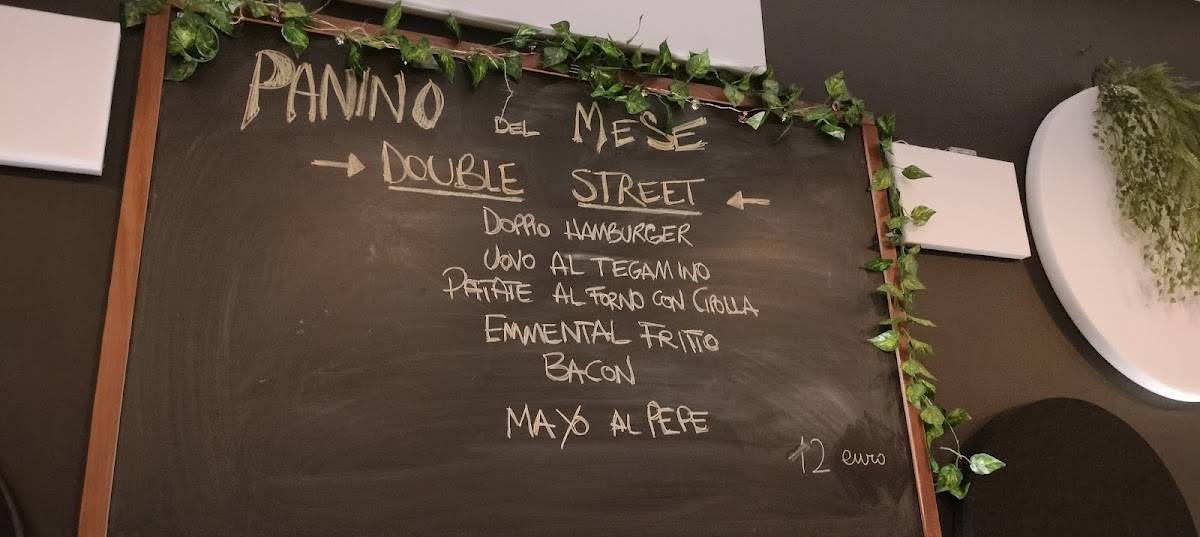 PANINO DEL MESE
→ DOUBLE STREET ←
DOPPIO HAMBURGER
UOVO AL TEGAMINO
PATATE AL FORNO CON CIPOLLA
EMMENTAL FRITTO
BACON
MAYO AL PEPE
12 euro